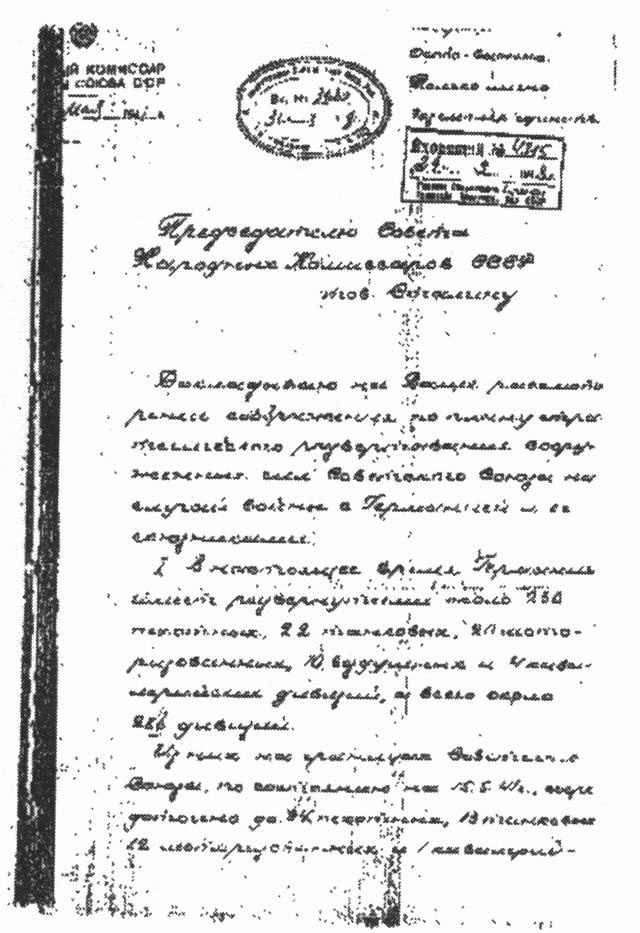 Й КОМИССАР
СОЮЗА ССР
Май
Вх. №
Только лично
Входящий №
Председателю Совета
Народных Комиссаров СССР
тов. Сталину
Докладываю на Ваше рассмот
рение соображения по плану стра
тегического развертывания воору-
женных сил Советского Союза на
случай войны с Германией и ее
союзниками.
I В настоящее время Германия
имеет развернутыми около 230
пехотных, 22 танковых, 20 мото-
ризованных, 10 воздушных и 4 кава-
лерийских дивизий, а всего около
дивизий.
Из них на границах Советского
Союза, по состоянию на 15.5.41г., сосре
доточено до пехотных, 13 танковых
12 моторизованных и 1 кавалерий-